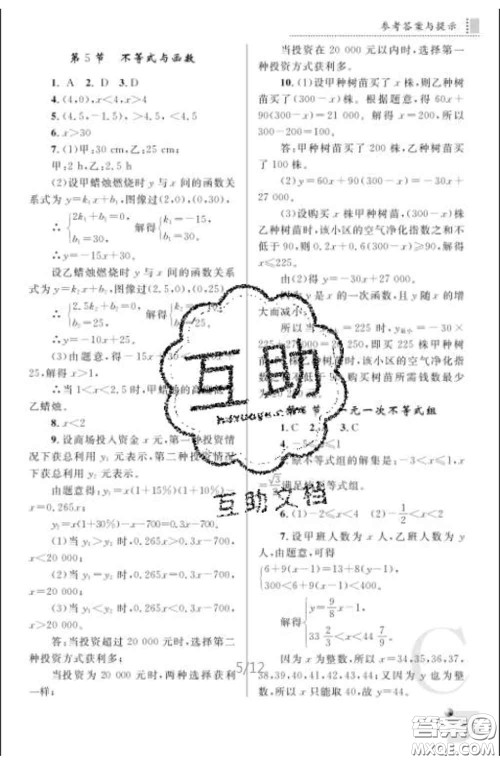 参考答案与提示
第 5 节　不等式与函数
1. A　2. D　3. D
4. (4,0),x<4,x>4
5. (4.5,-1.5),>4.5,<4.5
6. x>30
7. (1)甲:30 cm,乙:25 cm;
甲:2 h,乙:2.5 h
(2)设甲蜡烛燃烧时 y 与 x 间的函数关
系式为 y=k₁x+b₁,图像过(2,0),(0,30).
∴ {2k₁+b₁=0, 解得{k₁=-15,
b₁=30, b₁=30.
∴ y=-15x+30.
设乙蜡烛燃烧时 y 与 x 间的函数关系式
(3)由题意,得-15x+30
25,解得
∴ 当 1<x<2.5 时,甲
乙蜡烛.
8. x<2
9. 设商场投入资金 x 元,第一种投资情
况下获总利用 y₁ 元表示,第二种投资情况
下获总利用 y₂ 元表示.
由题意得:y₁=x(1+15%)(1+10%)-x
=0.265x;
y₂=x(1+30%)-x-700=0.3x-700.
(1)当 y₁>y₂ 时,0.265x>0.3x-700,
x<20 000;
(1)当 y₁=y₂ 时,0.265x=0.3x-700,
x=20 000;
(1)当 y₁<y₂ 时,0.265x<0.3x-700,
x>20 000.
答:当投资超过 20 000 元时,选择第二
种投资方式获利多;
当投资为 20 000 元时,两种选择获利
一样;
当投资在 20 000 元以内时,选择第一
种投资方式获利多.
10. (1)设甲种树苗买了 x 株,则乙种树
苗买了(300-x)株. 根据题意,得 60x+
90(300-x)=21 000. 解得 x=200,所以
300-200=100.
答:甲种树苗买了 200 株,乙种树苗买
了 100 株.
(2)y=60x+90(300-x)=-30x+
27 000.
(3)设购买 x 株甲种树苗,(300-x)株
乙种树苗时,该小区的空气净化指数之和不
低于 90,则 0.2x+0.6(300-x)≥90. 解得
x≤225.
由(2)得 y=-30x+27 000.
x 的一次函数,且 y 随 x 的增
大而减小,
所以当 x=225 时,y最小=-30×
225 株甲种树
乙种树苗时,该小区的空气净化
购买树苗所需钱数最少
一元一次不等式组
1. C　2.　3. C
原不等式组的解集是:
满足
6. (1)-2≤x<4　(2)-1/2<x<2
7. 设甲班人数为 x 人,乙班人数为 y
人,由题意,可得
{6+9(x-1)=13+8(y-1),
300<6+9(x-1)<400.
解得 {y=9/8 x-1,
33 2/3<x<44 7/9.
因为 x 为整数,所以 x=34,35,36,37,
38,39,40,41,42,43,44. 又因为 y 也是整
数,所以 x 只能取 40,故 y=44.
互助
互助文档
5/12
C
答案圈
MXQE.COM